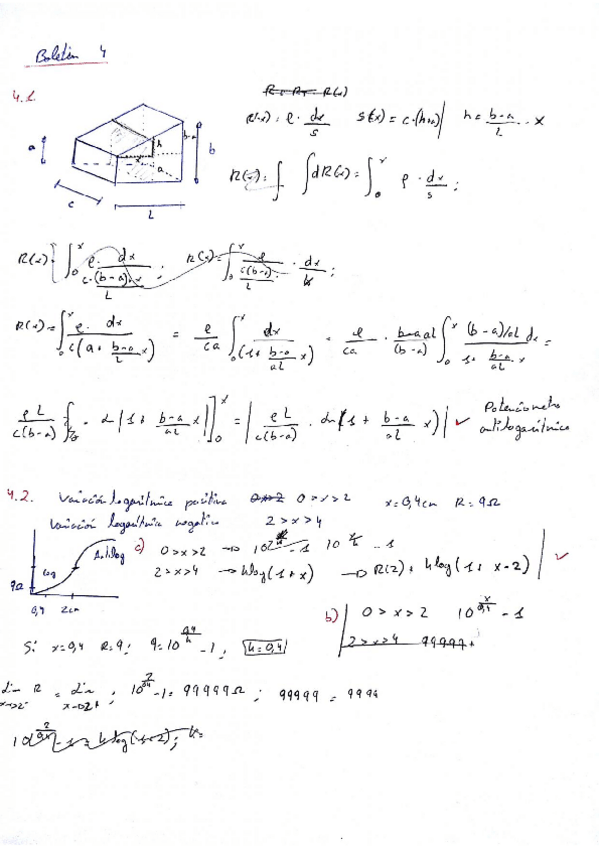 Boletín 4
4.1.
R(x) = ρ · dx/s   s(x) = c·(h+a)   h = b-a/L · x
a   h   b-a   b   a   c   L
R(x) = ∫   ∫dR(x) = ∫₀ˣ ρ · dx/s ;
R(x) = ∫₀ˣ ρ · dx / c·(b-a)·x/L ;   R(x) = ∫₀ˣ ρ / c(b-a)/L · dx/x ;
R(x) = ∫₀ˣ ρ · dx / c(a + b-a/L x) = ρ/ca ∫₀ˣ dx/(1 + b-a/aL x) = ρ/ca · aL/(b-a) ∫₀ˣ (b-a)/aL dx / 1 + b-a/aL x =
ρL/c(b-a) · ln|1 + b-a/aL x|]₀ˣ = | ρL/c(b-a) · ln(1 + b-a/aL x) | ✓ Potenciómetro
antilogarítmico
4.2. Variación logarítmica positiva 0 > x > 2   x = 0,4 cm   R = 9Ω
Variación logarítmica negativa 2 > x > 4
Antilog   log   9Ω   0,4   2cm
c) 0 > x > 2 → 10 - 1   10 - 1
2 > x > 4 → k log(1+x) → R(2) + k log(1 + x-2) ✓
b) 0 > x > 2   10^(x/0,4) - 1
2 > x > 4   99999 +
Si x = 0,4   R = 9;   9 = 10^(0,4/k) - 1;   k = 0,4
lim R = lim ; 10^(2/0,4) - 1 = 99999 Ω ; 99999 = 9999
x→2⁻   x→2⁺
10^(2/0,4) - 1 = k log(1+2); k =